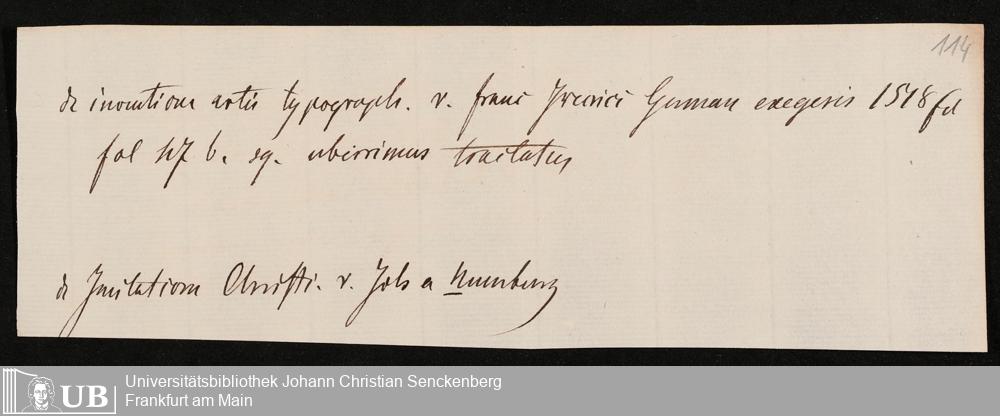 114
de inventione artis typograph. v. Franc Irenici German exegesis 1518 fol
fol 47 b. sq. uberrimus tractatus
de Imitatione Christi. v. Joh a Numburg
UB
Universitätsbibliothek Johann Christian Senckenberg
Frankfurt am Main